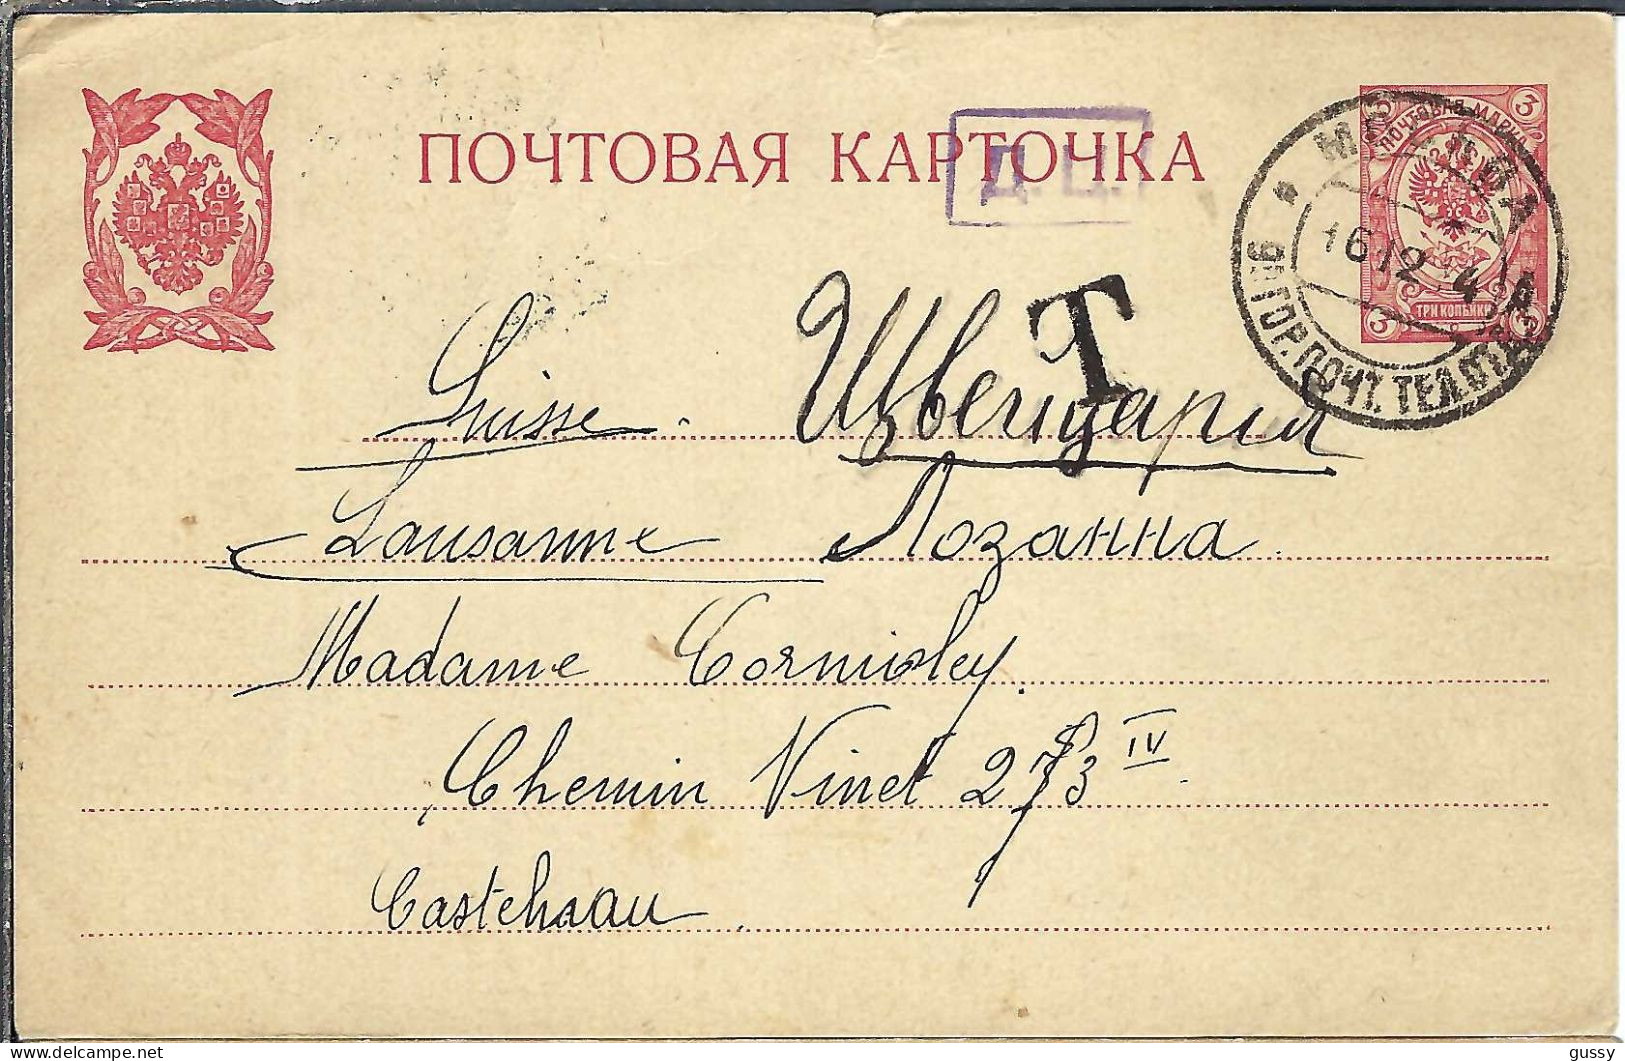 ПОЧТОВАЯ КАРТОЧКА
Д. Ц.
ПОЧТОВАЯ МАРКА
3 3
ТРИ КОПѢЙКИ
3 3
МОСКВА
16 12 14
ГОР. ПОЧТ. ТЕЛ. ОТД.
T
Suisse. Швейцария
Lausanne Лозанна.
Madame
Chemin Vinet IV
delcampe.net
gussy